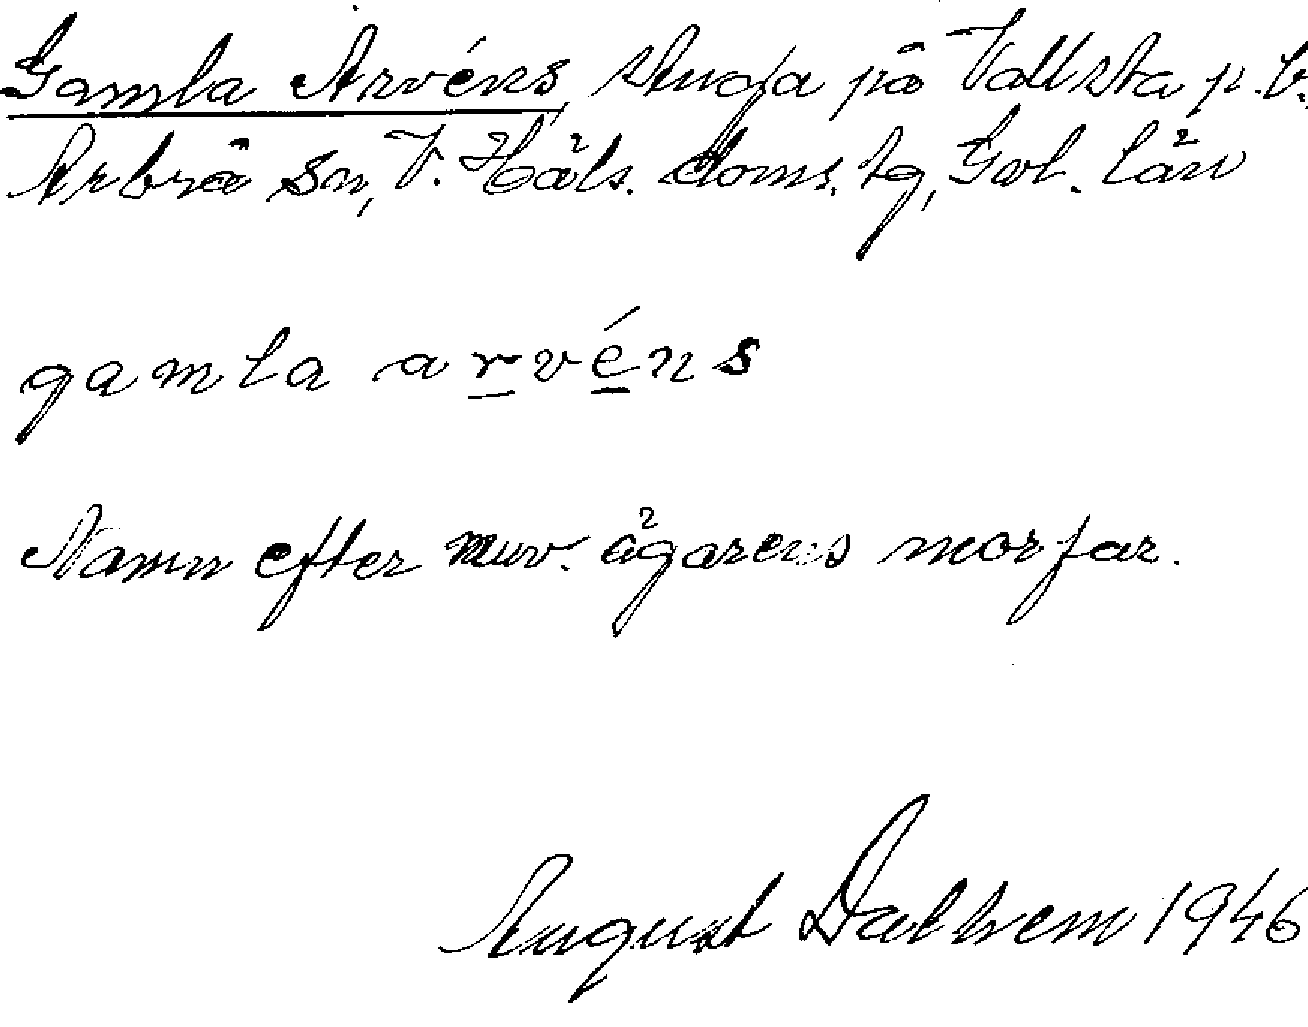 Gamla Arvéns stuga på Vallsta p.b.
Arbrå sn, V. Häls. doms. tg, Gvl. län
gamla arvéns
Namn efter nuv. ägarens morfar.
August Dalhem 1946